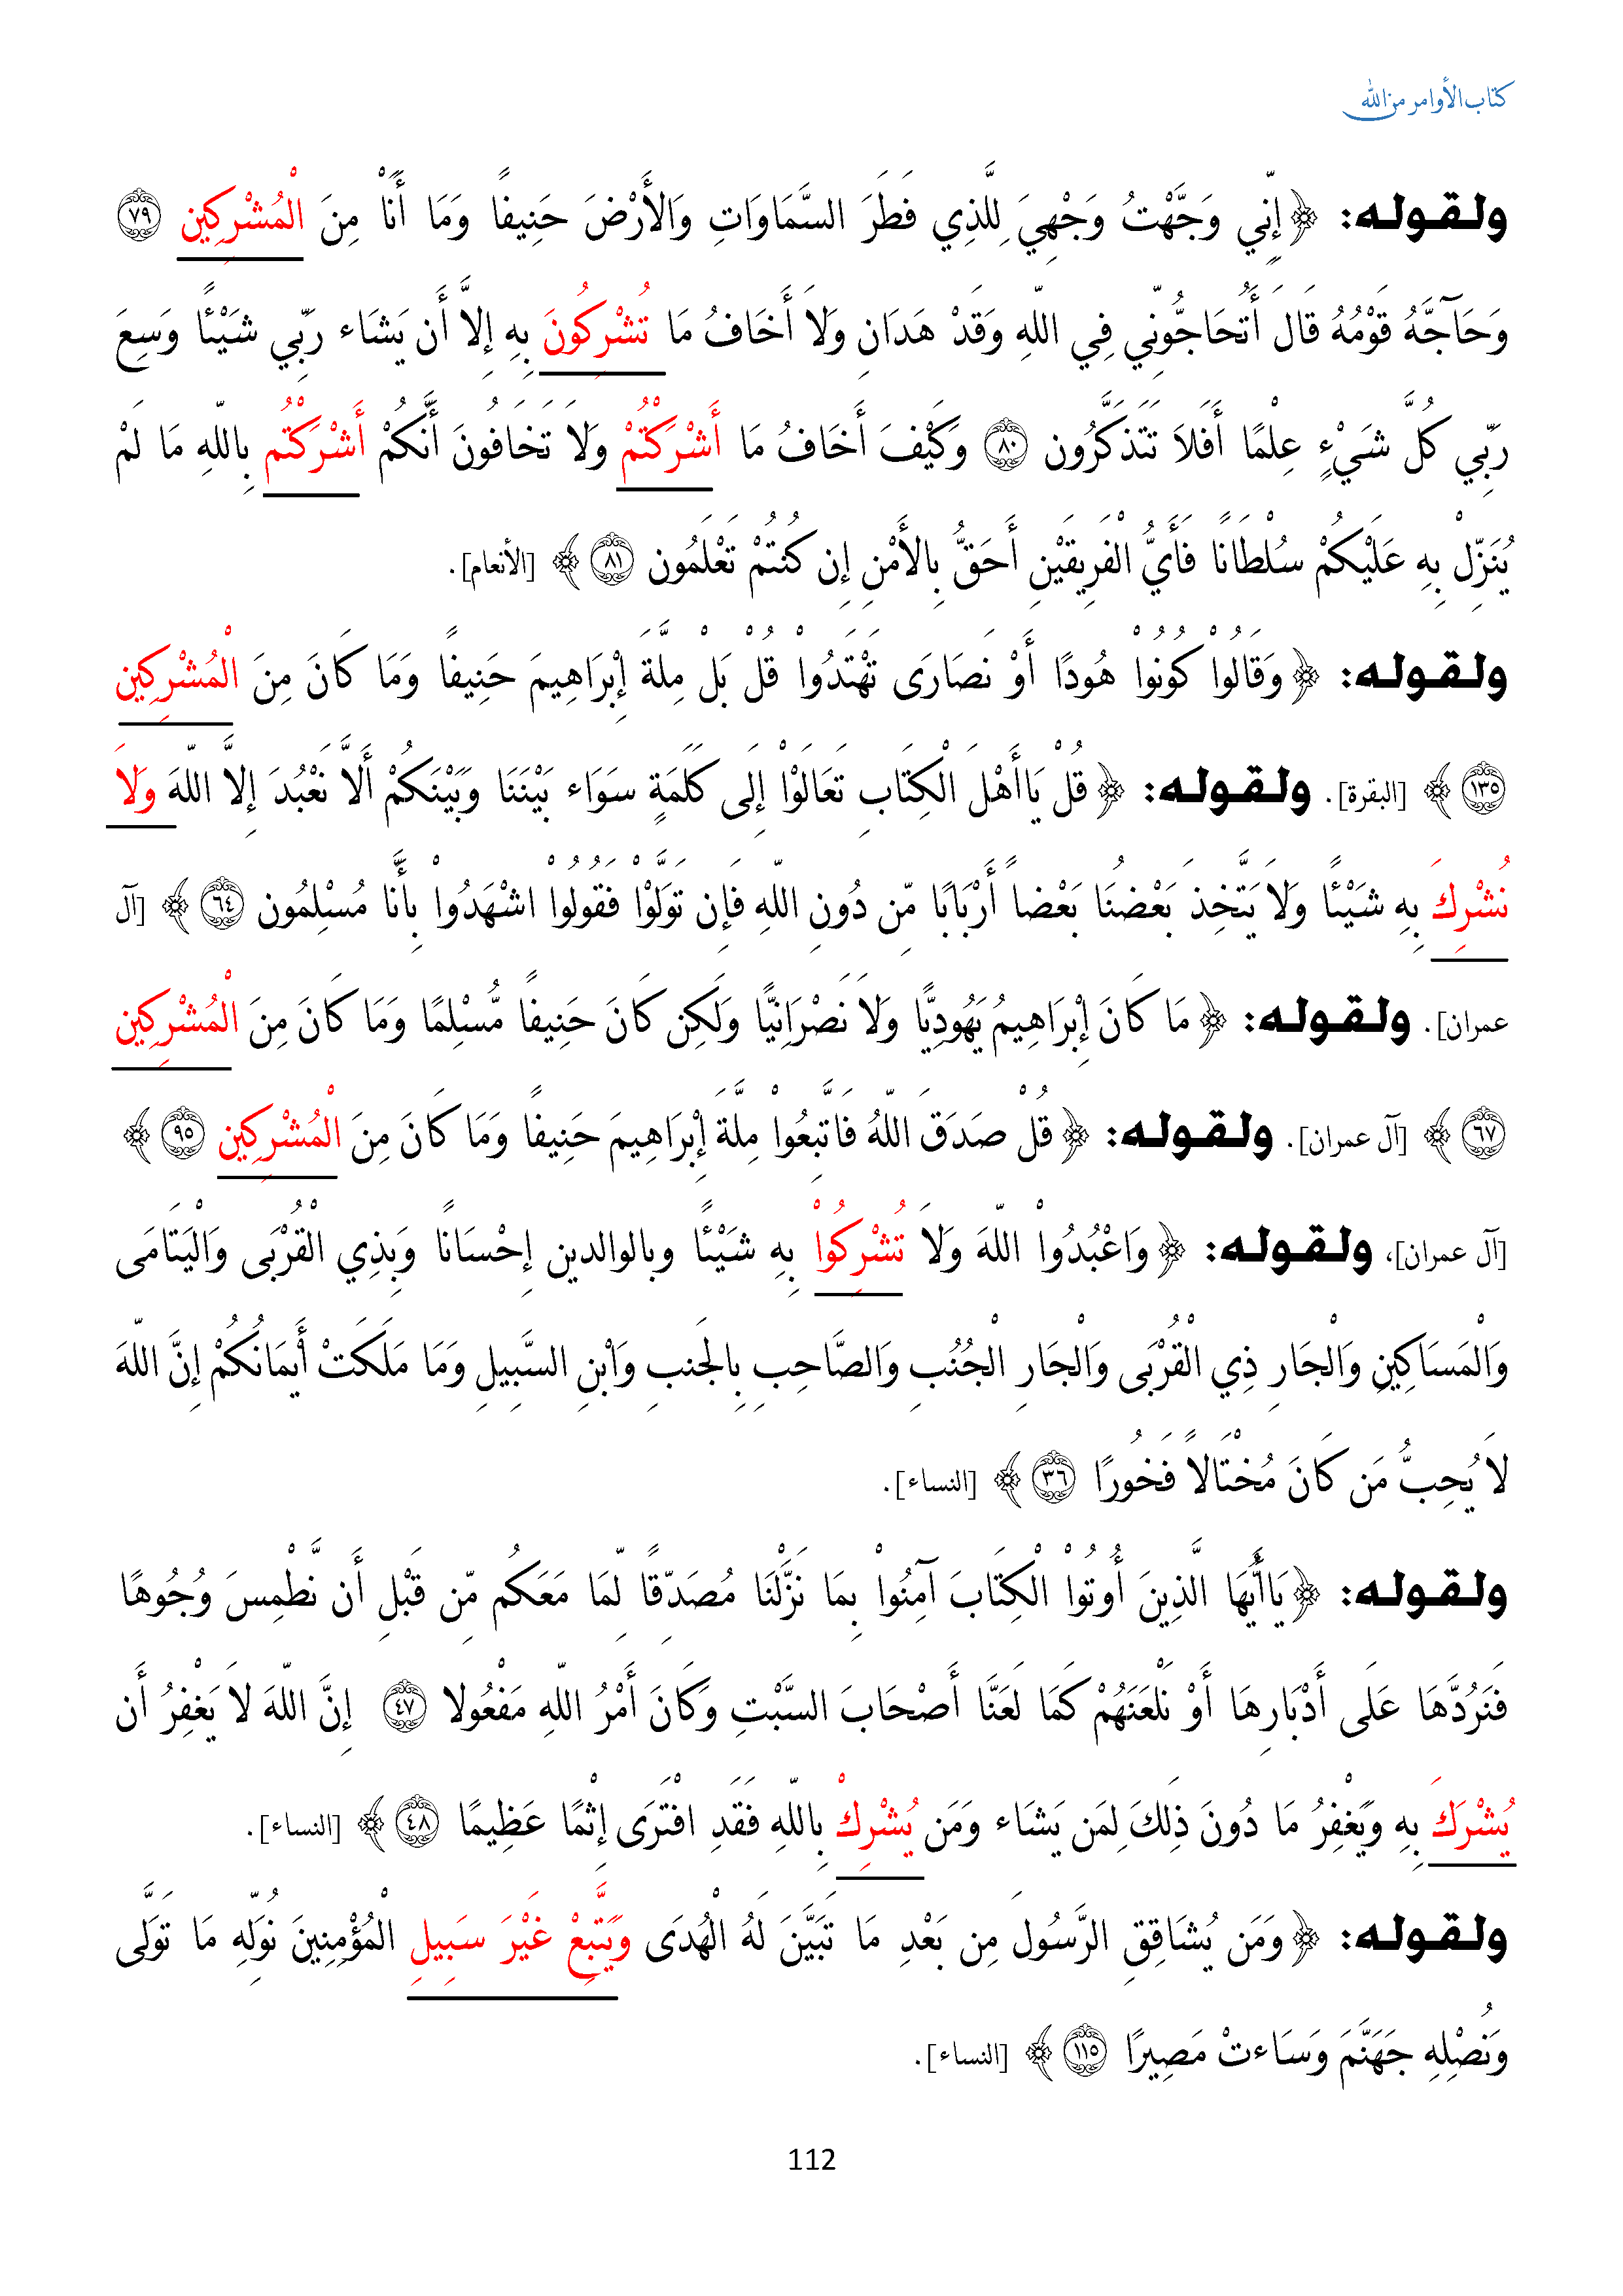 كتاب الأوامر من الله
ولقوله: ﴿إِنِّي وَجَّهْتُ وَجْهِيَ لِلَّذِي فَطَرَ السَّمَاوَاتِ وَالأَرْضَ حَنِيفًا وَمَا أَنَاْ مِنَ الْمُشْرِكِين ٧٩
وَحَآجَّهُ قَوْمُهُ قَالَ أَتُحَاجُّونِّي فِي اللّهِ وَقَدْ هَدَانِ وَلاَ أَخَافُ مَا تُشْرِكُونَ بِهِ إِلاَّ أَن يَشَاء رَبِّي شَيْئًا وَسِعَ
رَبِّي كُلَّ شَيْءٍ عِلْمًا أَفَلاَ تَتَذَكَّرُون ٨٠ وَكَيْفَ أَخَافُ مَا أَشْرَكْتُمْ وَلاَ تَخَافُونَ أَنَّكُمْ أَشْرَكْتُم بِاللّهِ مَا لَمْ
يُنَزِّلْ بِهِ عَلَيْكُمْ سُلْطَانًا فَأَيُّ الْفَرِيقَيْنِ أَحَقُّ بِالأَمْنِ إِن كُنتُمْ تَعْلَمُون ٨١ ﴾ [الأنعام].
ولقوله: ﴿وَقَالُواْ كُونُواْ هُودًا أَوْ نَصَارَى تَهْتَدُواْ قُلْ بَلْ مِلَّةَ إِبْرَاهِيمَ حَنِيفًا وَمَا كَانَ مِنَ الْمُشْرِكِين
١٣٥ ﴾ [البقرة]. ولقوله: ﴿قُلْ يَاأَهْلَ الْكِتَابِ تَعَالَوْاْ إِلَى كَلَمَةٍ سَوَاء بَيْنَنَا وَبَيْنَكُمْ أَلاَّ نَعْبُدَ إِلاَّ اللّهَ وَلاَ
نُشْرِكَ بِهِ شَيْئًا وَلاَ يَتَّخِذَ بَعْضُنَا بَعْضاً أَرْبَابًا مِّن دُونِ اللّهِ فَإِن تَوَلَّوْاْ فَقُولُواْ اشْهَدُواْ بِأَنَّا مُسْلِمُون ٦٤ ﴾ [آل
عمران]. ولقوله: ﴿مَا كَانَ إِبْرَاهِيمُ يَهُودِيًّا وَلاَ نَصْرَانِيًّا وَلَكِن كَانَ حَنِيفًا مُّسْلِمًا وَمَا كَانَ مِنَ الْمُشْرِكِين
٦٧ ﴾ [آل عمران]. ولقوله: ﴿قُلْ صَدَقَ اللّهُ فَاتَّبِعُواْ مِلَّةَ إِبْرَاهِيمَ حَنِيفًا وَمَا كَانَ مِنَ الْمُشْرِكِين ٩٥ ﴾
[آل عمران]، ولقوله: ﴿وَاعْبُدُواْ اللّهَ وَلاَ تُشْرِكُواْ بِهِ شَيْئًا وبالوالدين إِحْسَانًا وَبِذِي الْقُرْبَى وَالْيَتَامَى
وَالْمَسَاكِينِ وَالْجَارِ ذِي الْقُرْبَى وَالْجَارِ الْجُنُبِ وَالصَّاحِبِ بِالجَنبِ وَابْنِ السَّبِيلِ وَمَا مَلَكَتْ أَيْمَانُكُمْ إِنَّ اللّهَ
لاَ يُحِبُّ مَن كَانَ مُخْتَالاً فَخُورًا ٣٦ ﴾ [النساء].
ولقوله: ﴿يَاأَيُّهَا الَّذِينَ أُوتُواْ الْكِتَابَ آمِنُواْ بِمَا نَزَّلْنَا مُصَدِّقًا لِّمَا مَعَكُم مِّن قَبْلِ أَن نَّطْمِسَ وُجُوهًا
فَنَرُدَّهَا عَلَى أَدْبَارِهَا أَوْ نَلْعَنَهُمْ كَمَا لَعَنَّا أَصْحَابَ السَّبْتِ وَكَانَ أَمْرُ اللّهِ مَفْعُولا ٤٧ إِنَّ اللّهَ لاَ يَغْفِرُ أَن
يُشْرَكَ بِهِ وَيَغْفِرُ مَا دُونَ ذَلِكَ لِمَن يَشَاء وَمَن يُشْرِكْ بِاللّهِ فَقَدِ افْتَرَى إِثْمًا عَظِيمًا ٤٨ ﴾ [النساء].
ولقوله: ﴿وَمَن يُشَاقِقِ الرَّسُولَ مِن بَعْدِ مَا تَبَيَّنَ لَهُ الْهُدَى وَيَتَّبِعْ غَيْرَ سَبِيلِ الْمُؤْمِنِينَ نُوَلِّهِ مَا تَوَلَّى
وَنُصْلِهِ جَهَنَّمَ وَسَاءتْ مَصِيرًا ١١٥ ﴾ [النساء].
112